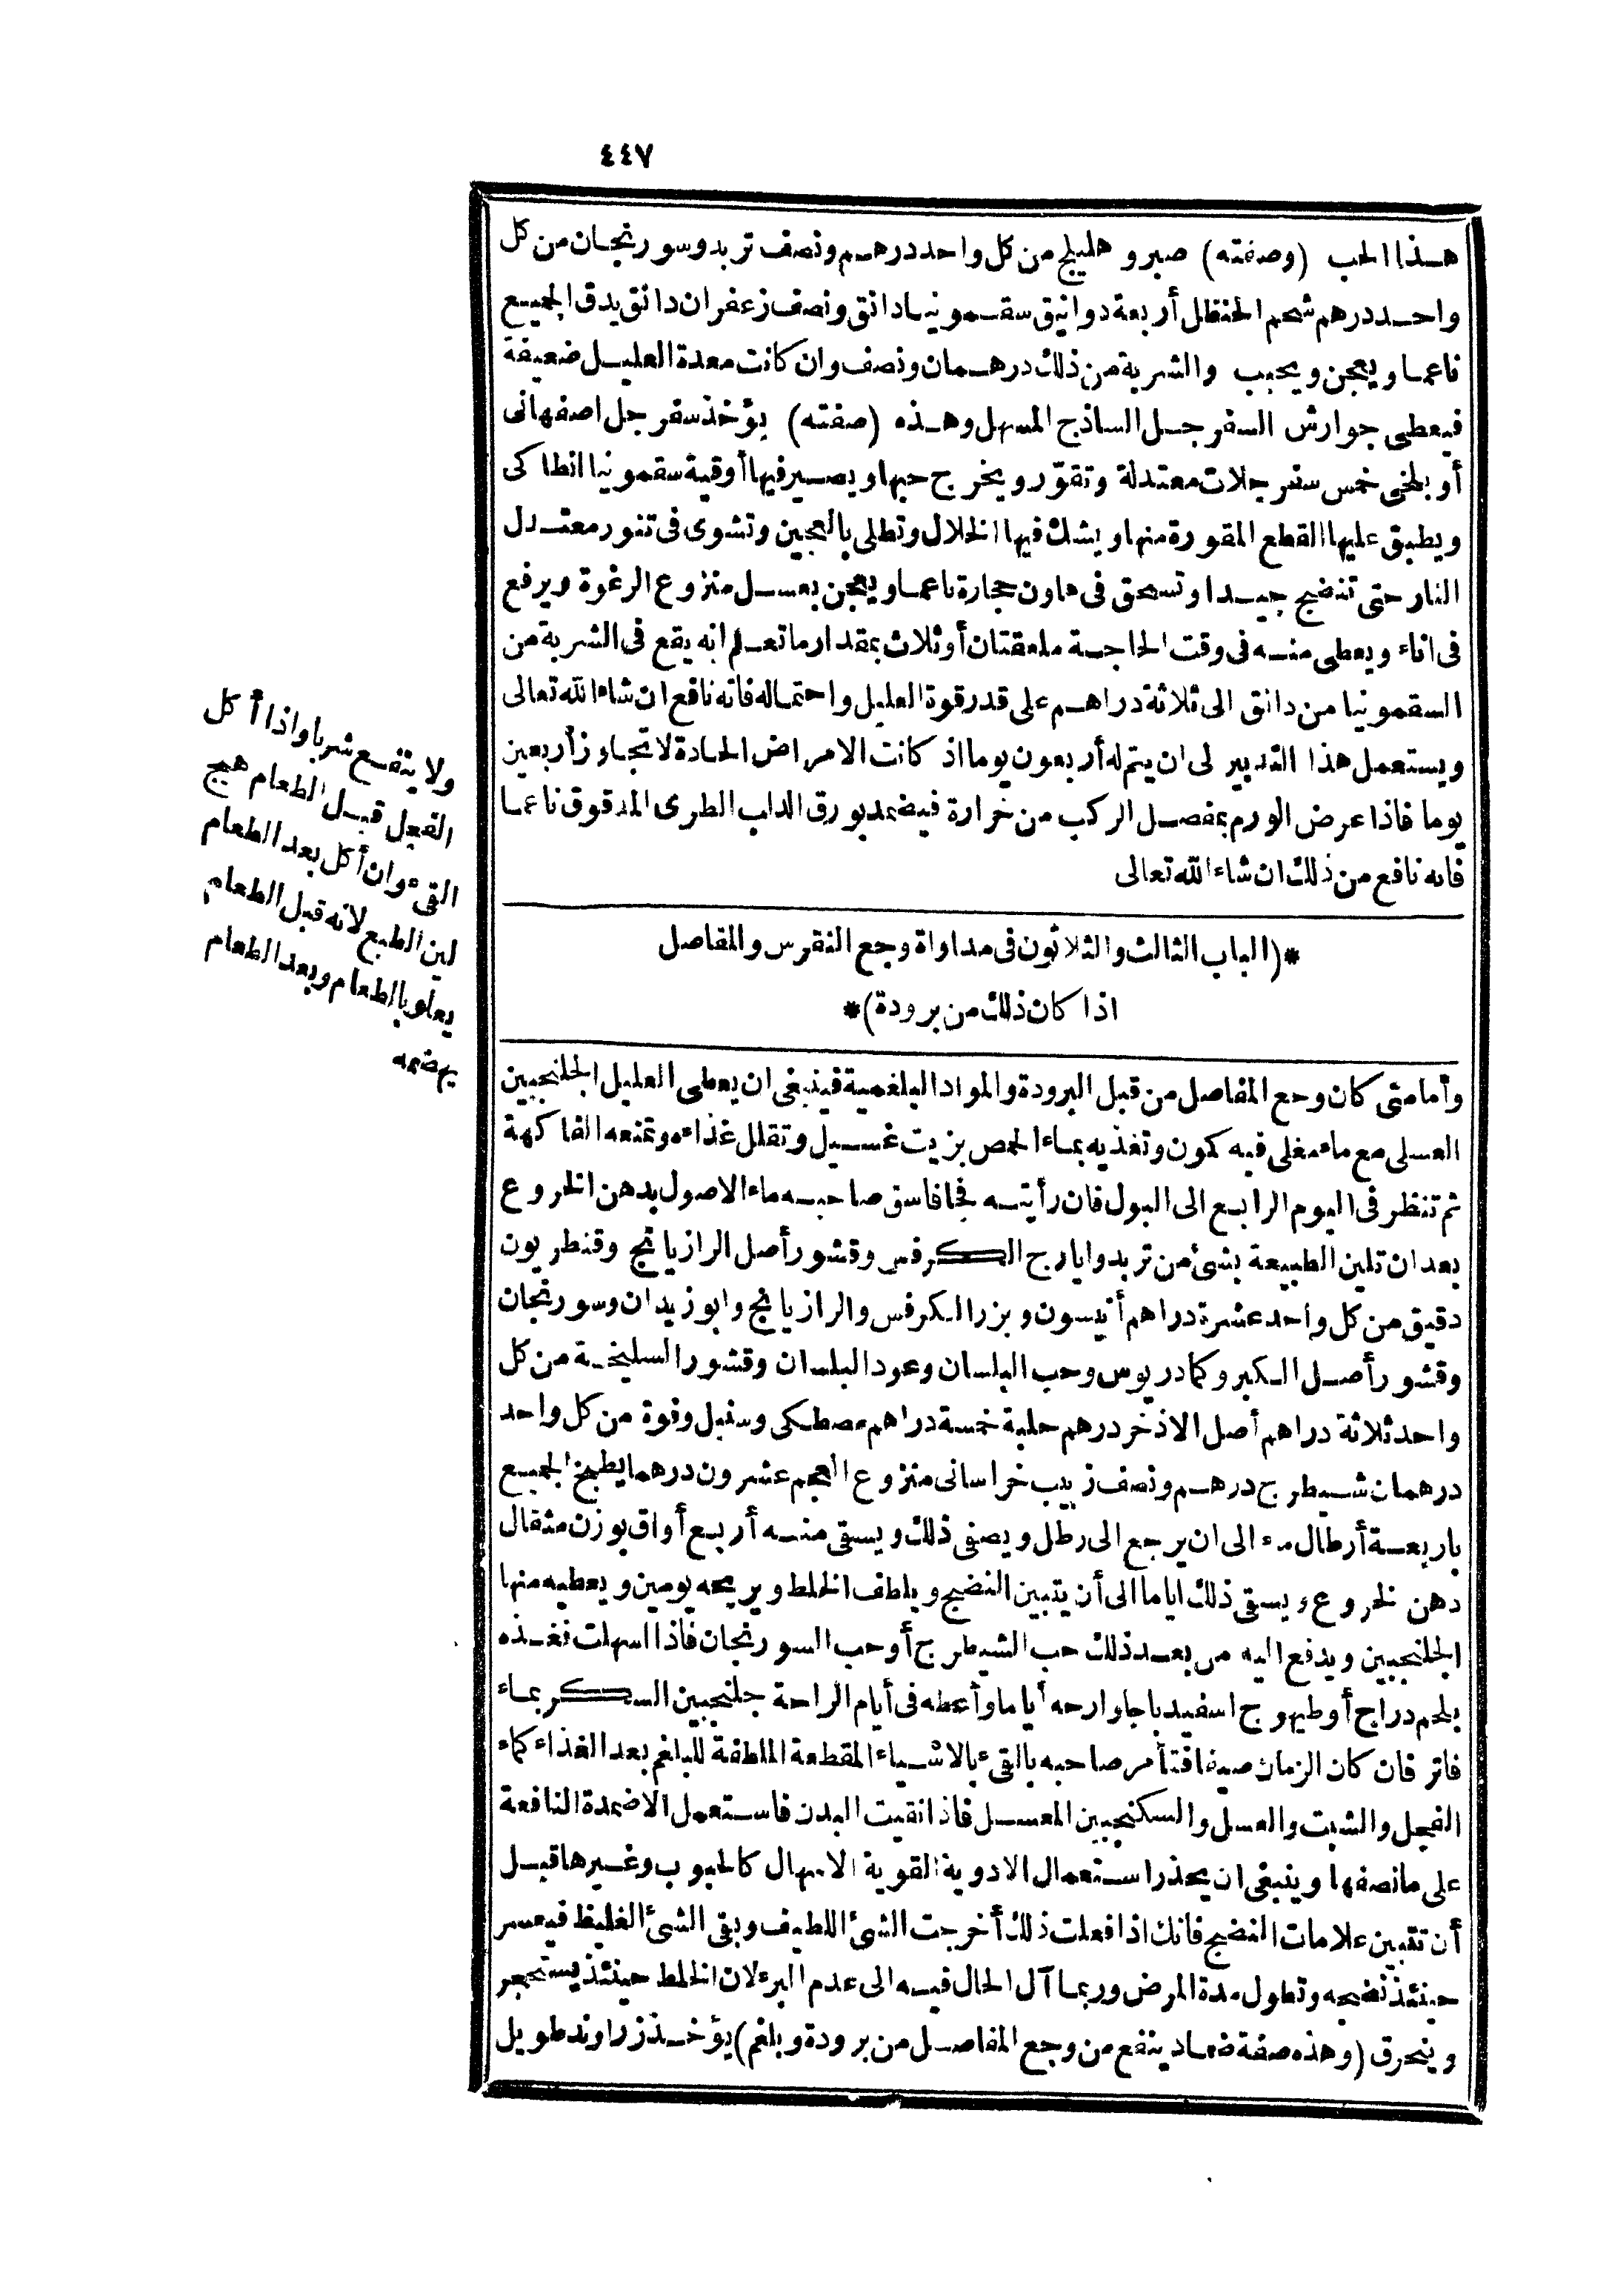 ٤٤٧
هذا الحب (وصفته) صبر وهليلج من كل واحد درهم ونصف تربد وسورنجان من كل
واحد درهم شحم الحنظل أربعة دوانيق سقمونيا دانق ونصف زعفران دانق يدق الجميع
ناعما ويعجن ويحبب والشربة من ذلك درهمان ونصف وان كانت معدة العليل ضعيفة
فيعطى جوارش السفرجل الساذج المسهل وهذه (صفته) يؤخذ سفرجل اصفهانى
أو بلخى خمس سفرجلات معتدلة وتقوّر ويخرج حبها ويصير فيها أوقية سقمونيا انطاكى
ويطبق عليها القطع المقورة منها ويشك فيها الخلال وتطلى بالعجين وتشوى فى تنور معتدل
النار حتى تنضج جيدا وتسحق فى هاون حجارة ناعما ويعجن بعسل منزوع الرغوة ويرفع
فى اناء ويعطى منه فى وقت الحاجة ملعقتان أو ثلاث بمقدار ما تعلم انه يقع فى الشربة من
السقمونيا من دانق الى ثلاثة دراهم على قدر قوة العليل واحتماله فانه نافع ان شاء الله تعالى
ويستعمل هذا التدبير لى ان يتم له أربعون يوما اذ كانت الامراض الحادة لا تجاوز أربعين
يوما فاذا عرض الورم بمفصل الركب من خرارة فيضمد بورق الداب الطرى المدقوق ناعما
فانه نافع من ذلك ان شاء الله تعالى
*(الباب الثالث والثلاثون فى مداواة وجع النقرس والمفاصل
اذا كان ذلك من برودة)*
وأما متى كان وجع المفاصل من قبل البرودة والمواد البلغمية فينبغى ان يعطى العليل الجلنجبين
العسلى مع ماء مغلى فيه كمون وتغذيه بماء الحمص بزيت غسيل وتقلل غذاءه وتمنعه الفاكهة
ثم تنظر فى اليوم الرابع الى البول فان رأيته فجا فاسق صاحبه ماء الاصول بدهن الخروع
بعد ان تلين الطبيعة بشئ من تربد وايارج الكرفس وقشور أصل الرازيانج وقنطريون
دقيق من كل واحد عشرة دراهم أنيسون وبزر الكرفس والرازيانج وابوزيدان وسورنجان
وقشور أصل الكبر وكمادريوس وحب البلسان وعود البلسان وقشور السليخة من كل
واحد ثلاثة دراهم أصل الاذخر درهم حلبة خمسة دراهم مصطكى وسنبل وفوة من كل واحد
درهمان شيطرج درهم ونصف زبيب خراسانى منزوع العجم عشرون درهما يطبخ الجميع
باربعة أرطال ماء الى ان يرجع الى رطل ويصفى ذلك ويسقى منه أربع أواق بوزن مثقال
دهن لخروع ويسقى ذلك اياما الى أن يتبين النضج ويلطف الخلط ويريحه يومين ويعطيه منها
الجلنجبين ويدفع اليه من بعد ذلك حب الشيطرج أو حب السورنجان فاذا اسهلت فغذه
بلحم دراج أو طيهوج اسفيدباجا وارحه أياما وأعطه فى أيام الراحة جلنجبين السكر بماء
فاتر فان كان الزمان صيفا فتأمر صاحبه بالقىء بالاشياء المقطعة الملطفة للبلغم بعد الغذاء كماء
الفجل والشبت والعسل والسكنجبين المعسل فاذا نقيت البدن فاستعمل الاضمدة النافعة
على ما نصفها وينبغى ان يحذر استعمال الادوية القوية الاسهال كالحبوب وغيرها قبل
أن تتبين علامات النضج فانك اذا فعلت ذلك أخرجت الشئ اللطيف وبقى الشئ الغليظ فيعسر
حينئذ نضجه وتطول مدة المرض وربما آل الحال فيه الى عدم البرء لان الخلط حينئذ يستحجر
وينحرق (وهذه صفة ضماد ينفع من وجع المفاصل من برودة وبلغم) يؤخذ زراوند طويل
ولا ينفع شربا واذا أكل
الفجل قبل الطعام هيج
القىء وان أكل بعد الطعام
لين الطبع لانه قبل الطعام
يعلو بالطعام وبعد الطعام
يهضمه